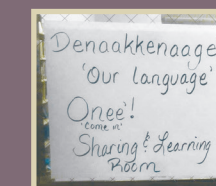 Denaakkenaage
'Our language'
Onee'!
'come in'
Sharing & Learning
Room